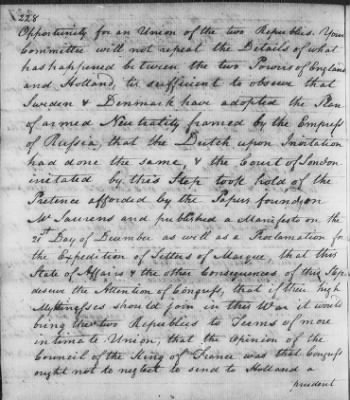 228
Opportunity for an Union of the two Republics. Your
Committee will not repeat the Details of what
has happened between the two Powers of England
and Holland, tis sufficient to observe that
Sweden & Denmark have adopted the Plan
of armed Neutrality framed by the Empress
of Russia, that the Dutch upon Invitation
had done the same, & the Court of London
irritated by this Step took hold of the
Pretence afforded by the Papers found on
Mr Laurens and published a Manifesto on the
21st Day of December as well as a Proclamation for
the Expedition of Letters of Marque, that this
State of Affairs & the other Consequences of this Step
deserve the Attention of Congress, that if their high
Mightinesses should join in this War it would
bring the two Republics to Terms of more
intimate Union, that the Opinion of the
Council of the King of France was that Congress
ought not to neglect to send to Holland a
prudent